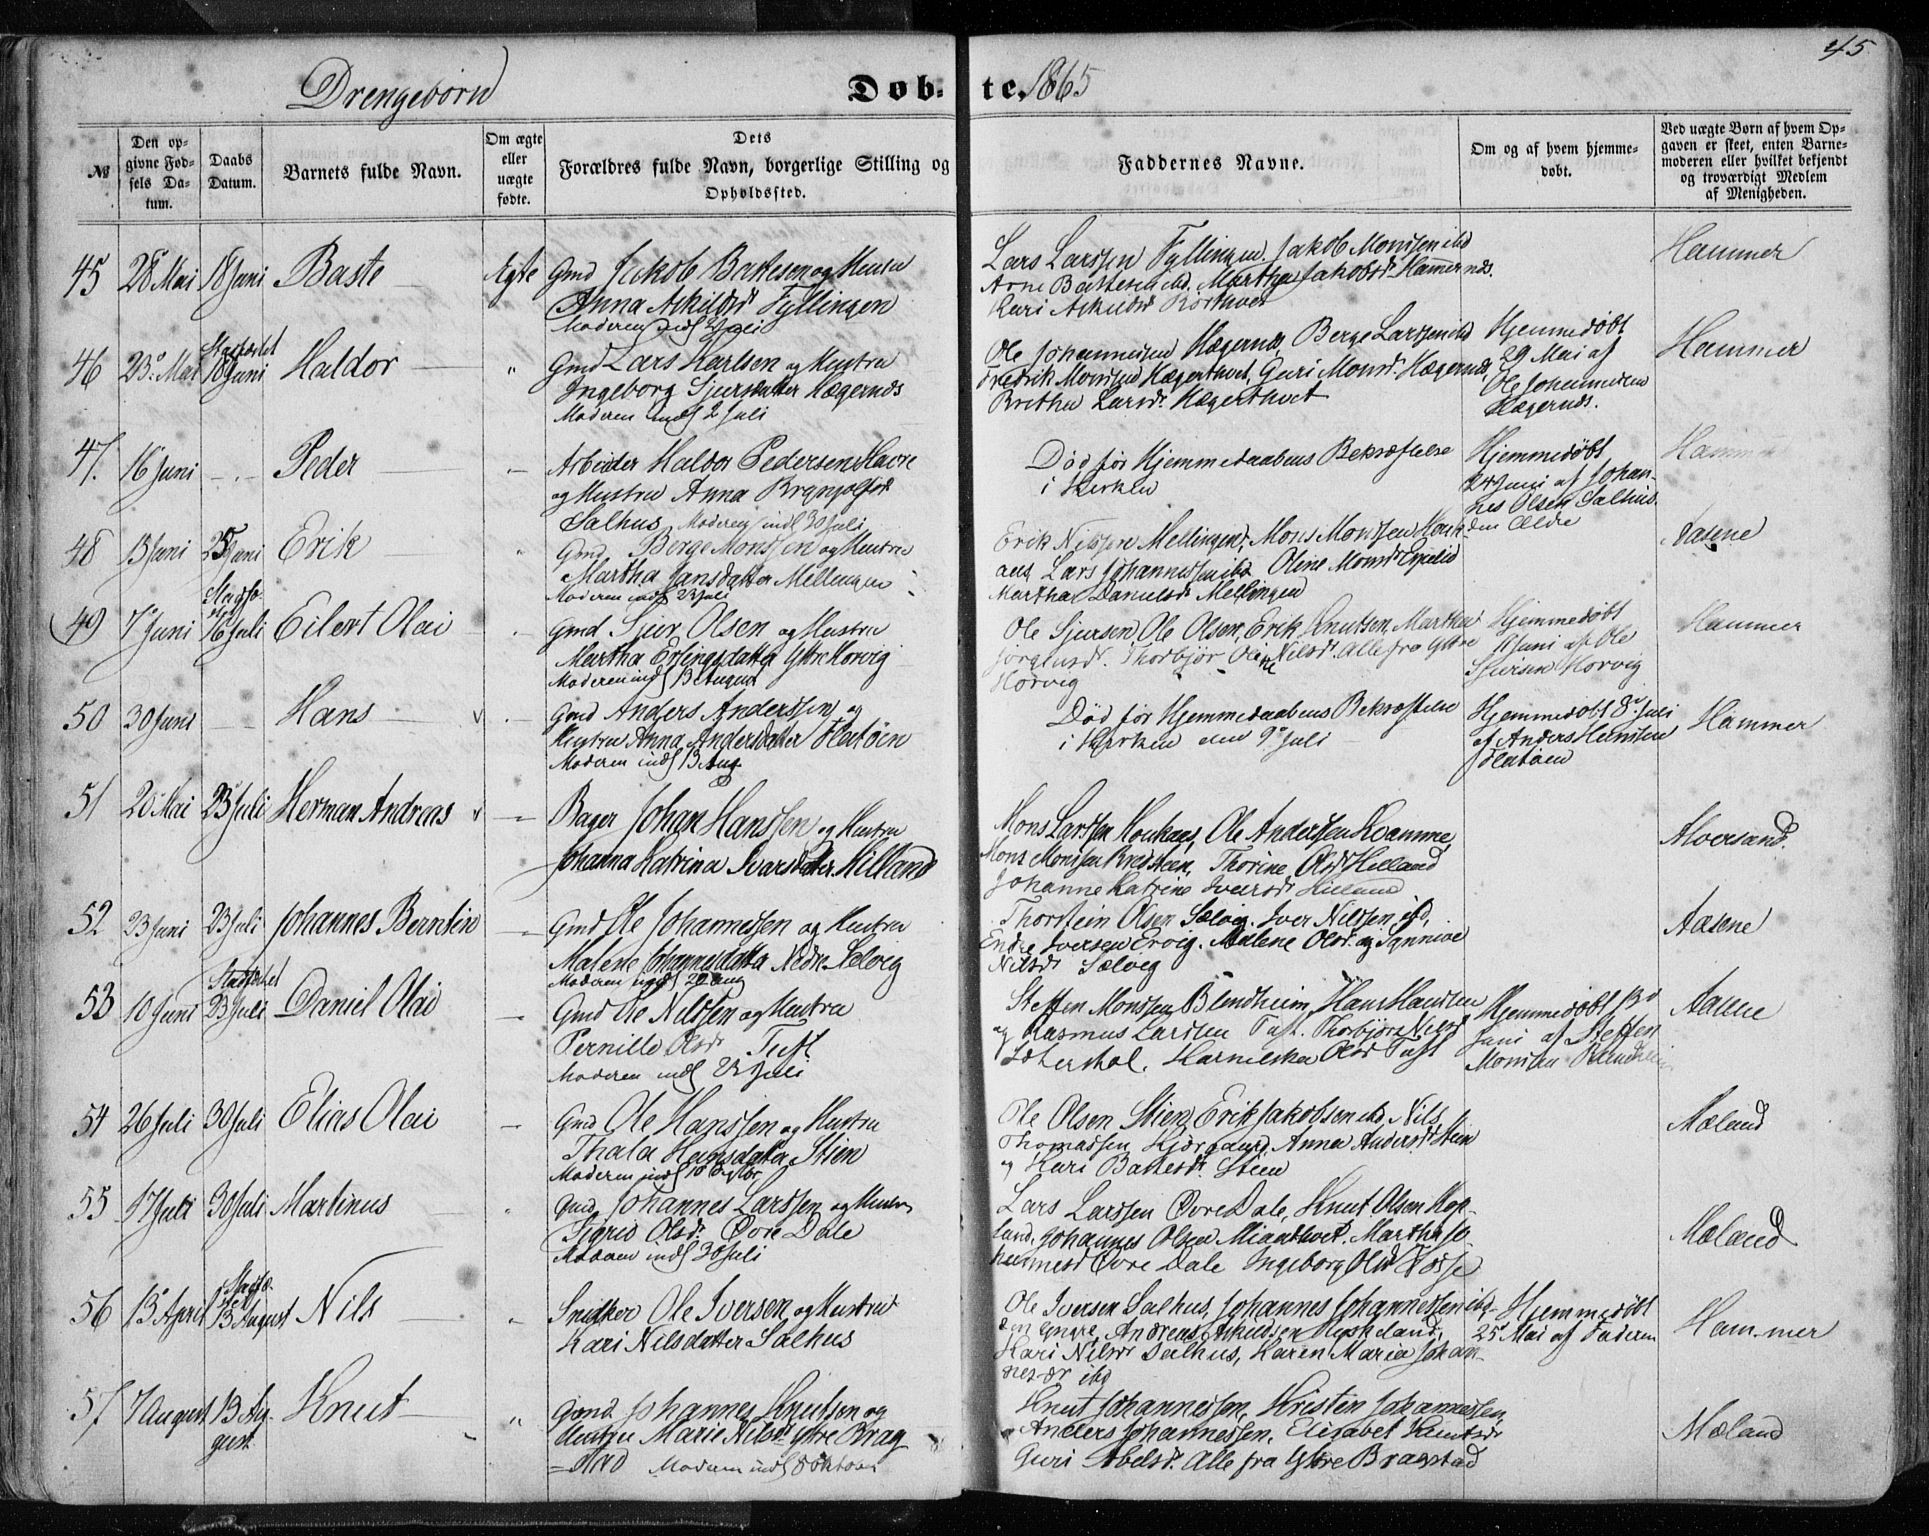 45
Drengebørn
Døb-te. 1865
№
Den op-
givne Fød-
sels Da-
tum.
Daabs
Datum.
Barnets fulde Navn.
Om ægte
eller
uægte
fødte.
Dets
Forældres fulde Navn, borgerlige Stilling og
Opholdssted.
Faddernes Navne.
Om og af hvem hjemme-
døbt.
Ved uægte Børn af hvem Op-
gaven er skeet, enten Barne-
moderen eller hvilket bekjendt
og troværdigt Medlem
af Menigheden.
45 28 Mai 18 Juni Baste Ægte Gmd Jakob Bastesen og Hustru
Anna Askildsdr Fyllingen
Moderen indl
Lars Larssen Fyllingen. Jakob Monssen ibd
Arne Bastesen ibd. Martha Jakobsdr Hammernæs.
Kari Askildsdr
Hammer
46 23 Mai Stadfæstet
18 Juni Haldor " Gmd Lars Karlsen og Hustru
Ingeborg Sjursdatter Hægernæs
Moderen indl 2 Juli
Ole Johannessen Hægernæs Berge Larssen ibd
Fredrik Monssen Hægerthvet, Guri Monsdr Hægernæs,
Brethe Larsdr Hægerthvet
Hjemmedøbt
29 Mai af
Ole Johannessen
Hægernæs.
Hammer
47. 16 Juni - - Peder - Arbeider Haldor Pedersen Havre
og Hustru Anna Brynjolfsdr
Salhus Moderen indl 30 Juli
Død før Hjemmedaabens Bekræftelse
i Kirken
Hjemmedøbt
24 Juni af Johan-
nes Olsen Salhus.
den Ældre
Hammer
48 13 Juni 25 Juni Erik " Gmd Berge Monssen og Hustru
Martha Jansdatter Mellingen
Moderen indl 23 Juli
Erik Nilssen Mellingen, Mons Monssen Houk-
aas Lars Johannessen ibd Oline Monsdr Espelid
Martha Danielsdr Mellingen
Aasene
49 7 Juni Stadfæ-
stet
16 Juli Eilert Olai - Gmd Sjur Olsen og Hustru
Martha Erlingsdatter Ytre Horvig
Moderen indl 13 August
Ole Sjursen, Ole Olsen, Erik Knutsen, Martha
Thorbjør Oline Nilsdr. Alle fra Ytre
Horvig
Hjemmedøbt
11 Juni af Ole
Sjursen Horvig
Hammer
50 30 Juni — Hans v - Gmd Anders Anderssen og
Hustru Anna Andersdatter Flatøen
Moderen indl 13 Aug
Død før Hjemmedaabens Bekræftelse
i Kirken den 9 Juli
Hjemmedøbt 8 Juli
af Anders
Flatøen
Hammer
51 20 Mai 23 Juli Herman Andreas v - Bager Johan Hanssen og Hustru
Johanna Katrina Ivarsdatter Hilland
Mons Larssen Houkaas, Ole Anderssen Kvamme,
Mons Monssen Thorine Olsdr Hilland
Johanne Katrine Iversdr Hilland
Alversund
52 23 Juni 23 Juli Johannes Berntin - Gmd Ole Johannessen og Hustru
Malene Johannesdatter Nedre Selvig
Moderen indl 20 Aug
Thorstein Olsen Sælvig. Iver Nilssen ibd,
Endre Iversen Ervig. Malene Olsdr og Synnive
Nilsdr Sælvig
Aasene
53 10 Juni Stadfæstet
23 Juli Daniel Olai - Gmd Ole Nilssen og Hustru
Pernille Olsdr Tuft
Moderen indl 23 Juli
Steffen Monssen Blindheim, Hans Hanssen
og Rasmus Larssen Tuft. Thorbjør Nilsdr
Sæterstøl. Olsdr Tuft
Hjemmedøbt 13
Juni af Steffen
Monssen Blindheim
Aasene
54 26 Juli 30 Juli Elias Olai - Gmd Ole Hanssen og Hustru
Thala Hansdatter Stien
Moderen indl 10 Septbr
Ole Olsen Stien, Erik Jakobsen ibd, Nils
Thomassen Anna Andersdr Stien
og Kari Bastesdr Stien
Mæland
55 17 Juli 30 Juli Martinus " Gmd Johannes Larssen og Hustru
Sigrid Olsdr. Øvre Dale
Moderen indl 30 Juli
Lars Larssen Øvre Dale, Knut Olsen Hop-
land, Johannes Olsen Mianthvet. Martha Jo-
hannesdr Øvre Dale Ingeborg Olsdr Fosse
Mæland
56 15 April Stadfæ-
stet
13 August Nils " Snidker Ole Iversen og Hustru
Kari Nilsdatter Salhus
Ole Iversen Salhus, Johannes Johannessen ibd
den Yngre, Andreas Askildsen
Kari Nilsdr Salhus, Karen Maria Johan-
nesdr ibd
Hjemmedøbt
25 Mai af Faderen
Hammer
57 7 August 13 Au-
gust Knut " Gmd Johannes Knutsen og
Hustru Marie Nilsdr Ytre Brag-
stad Moderen indl 8 Oktober
Knut Johannessen, Kristen Johannessen,
Anders Johannessen, Elisabet Knutsdr
Guri Abelsdr. Alle fra Ytre Bragstad
Mæland